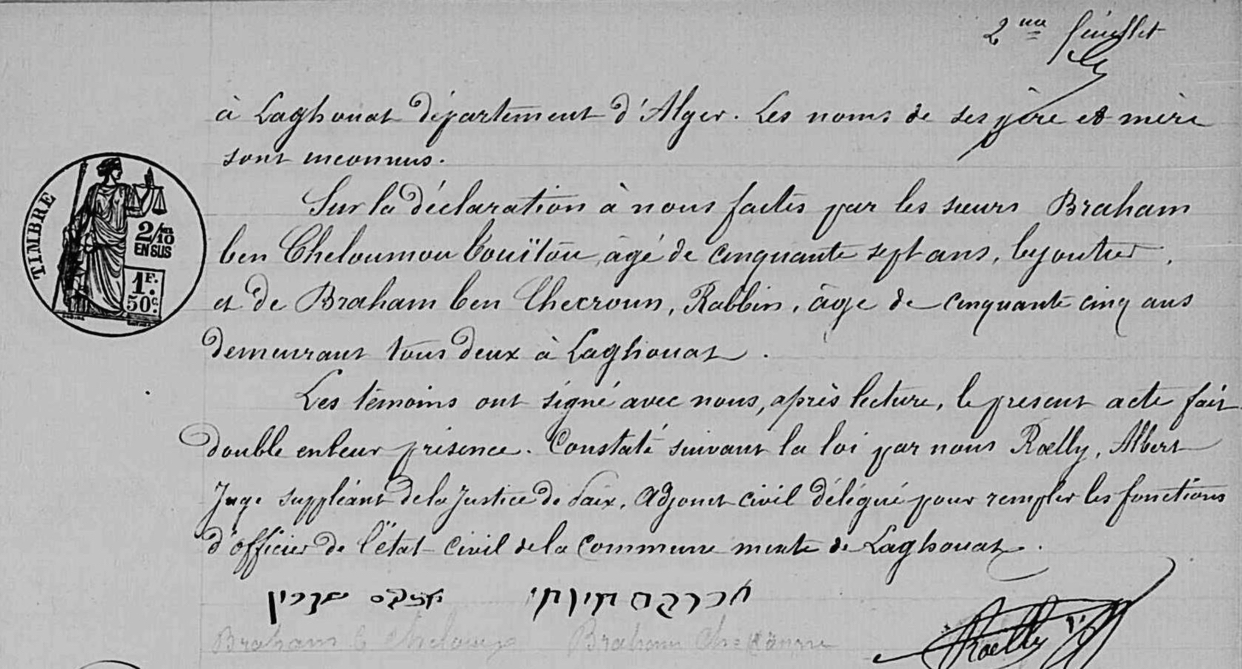 2me feuillet
à Laghouat département d'Alger. Les noms de ses père et mère
sont inconnus.
TIMBRE
2/10
EN SUS
1F.
50c.
Sur la déclaration à nous faites par les sieurs Braham
ben Cheloumou , âgé de cinquante sept ans, bijoutier,
et de Braham ben Checroun, Rabbin, âgé de cinquante cinq ans
demeurant tous deux à Laghouat.
Les témoins ont signé avec nous, après lecture, le présent acte fait
double en leur présence. Constaté suivant la loi par nous Roelly, Albert
Juge suppléant de la Justice de Paix, Adjoint civil délégué pour remplir les fonctions
d'officier de l'état civil de la Commune mixte de Laghouat.
Braham b Cheloumou Braham
Roelly